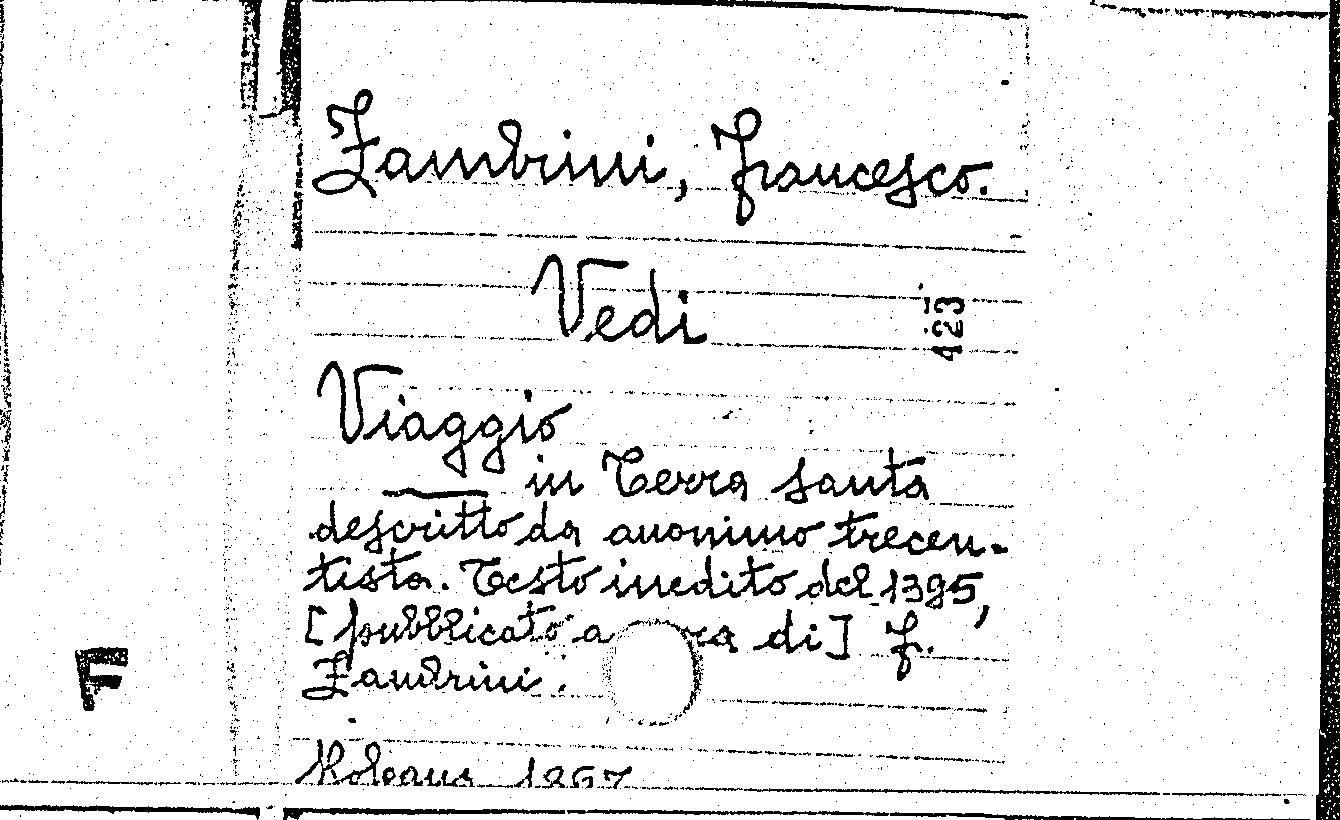 Zambrini, Francesco.
Vedi
423
Viaggio
in Terra santa
descritto da anonimo trecen-
tista. Testo inedito del 1395,
[pubblicato a ra di] F.
Zambrini.
F
1867